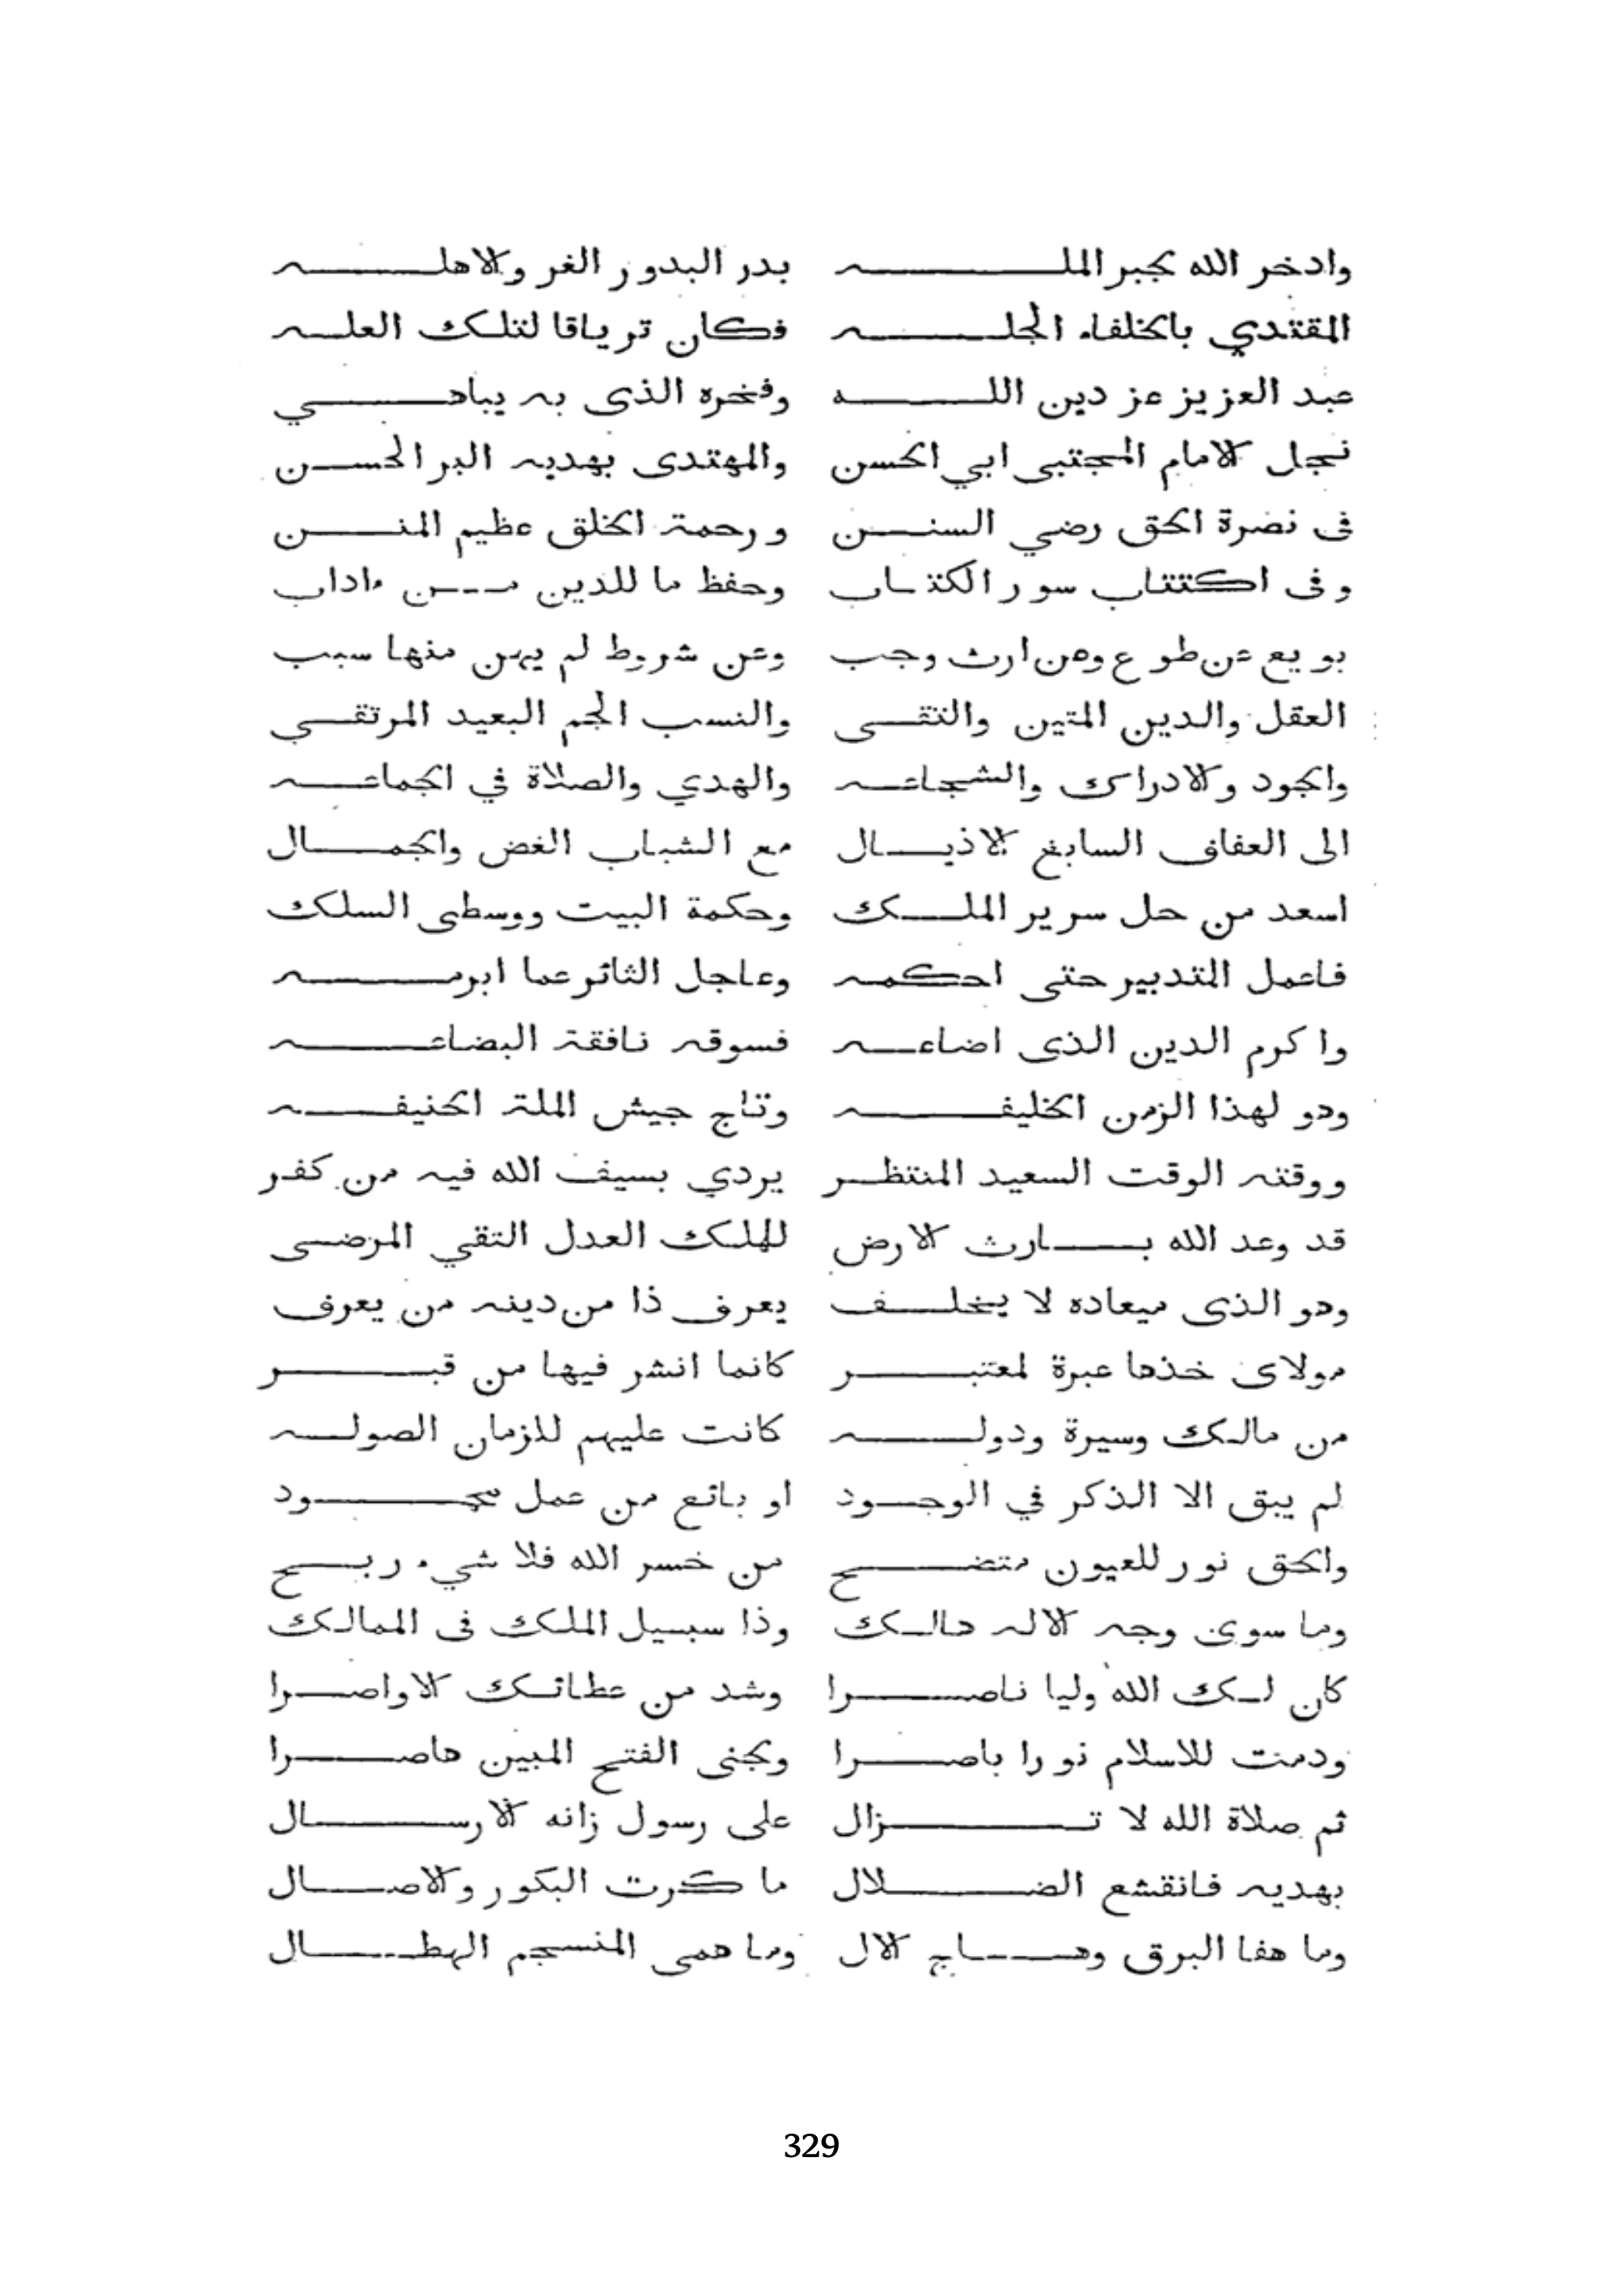 وادخر الله لجبر الملـــه بدر البدور الغر والاهلـــه
المقتدي بالخلفاء الجلـــه فكان ترياقا لتلك العلـــه
عبد العزيز عز دين اللـــه وفخره الذى به يباهـــي
نجل الامام المجتبى ابي الحسن والمهتدى بهديه البر الحســن
فى نصرة الحق رضي السنــن ورحمة الخلق عظيم المنــن
وفى اكتتاب سور الكتــاب وحفظ ما للدين مــن ءاداب
بويع عن طوع وعن ارث وجب وعن شروط لم يهن منها سبب
العقل والدين المتين والتقــى والنسب الجم البعيد المرتقــي
والجود والادراك والشجاعــه والهدي والصلاة في الجماعــه
الى العفاف السابغ الاذيــال مع الشباب الغض والجمــال
اسعد من حل سرير الملــك وحكمة البيت ووسطى السلك
فاعمل التدبير حتى احكمــه وعاجل الثائر عما ابرمــه
واكرم الدين الذى اضاعــه فسوقه نافقة البضاعــه
وهو لهذا الزمن الخليفــه وتاج جيش الملة الحنيفــه
ووقته الوقت السعيد المنتظــر يردي بسيف الله فيه من كفر
قد وعد الله بــارث الارض للملك العدل التقي المرضــى
وهو الذى ميعاده لا يخلــف يعرف ذا من دينه من يعرف
مولاى خذها عبرة لمعتبــر كانما انشر فيها من قبــر
من مالك وسيرة ودولــه كانت عليهم للزمان الصولــه
لم يبق الا الذكر في الوجــود او بائع من عمل مجــود
والحق نور للعيون متضــح من خسر الله فلا شيء ربــح
وما سوى وجه الاله هالــك وذا سبيل الملك فى الممالك
كان لــك الله وليا ناصــرا وشد من عطائــك الاواصــرا
ودمت للاسلام نورا باصــرا ولجنى الفتح المبين هاصــرا
ثم صلاة الله لا تــزال على رسول زانه الارســال
بهديه فانقشع الضــلال ما كرت البكور والاصــال
وما هفا البرق وهــاج الال وما همى المنسجم الهطــال
329